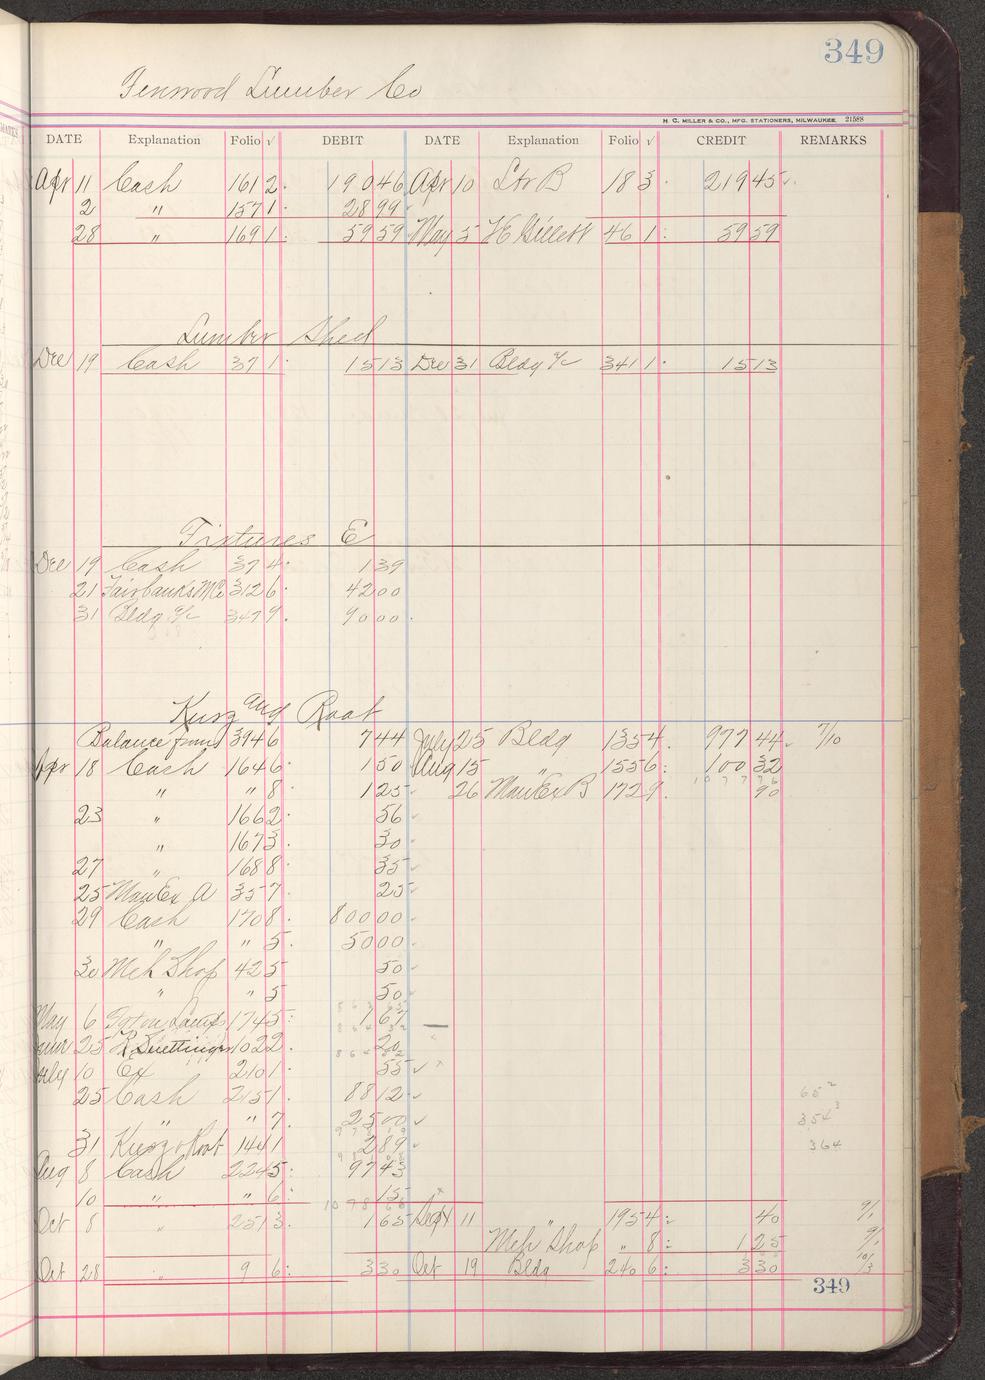 349
Fenwood Lumber Co
H. C. MILLER & CO., MFG. STATIONERS, MILWAUKEE. 21588
DATE Explanation Folio √ DEBIT DATE Explanation Folio √ CREDIT REMARKS
Apr 11 Cash 161 2 190 46 Apr 10 18 3 219 45
2 " 157 1 28 99
28 " 169 1 59 59 May 5 H Gillett 46 1 59 59
Lumber Shed
Dec 19 Cash 37 1 15 13 Dec 31 Bldg a/c 341 1 15 13
Fixtures E
Dec 19 Cash 37 4 1 39
21 Fairbanks M Co 312 6 42 00
31 Bldg a/c 347 9 90 00
Kurz and Root
Balance from 394 6 7 44 July 25 Bldg 135 4 977 44 7/10
Apr 18 Cash 164 6 1 50 Aug 15 " 155 6 100 32
" " 8 1 25 26 Man Ex B 172 9 90
23 " 166 2 56
" 167 3 30
27 " 168 8 35
25 Man Ex A 35 7 25
29 Cash 170 8 800 00
" " 5 50 00
30 Mch Shop 42 5 50
" " 5 50
May 6 174 5 7 67
June 25 R Suettinger 102 2 20
July 10 Ex 210 1 55
25 Cash 215 1 88 12
" " 7 25 00
31 Kurz & Root 144 1 2 89
Aug 8 Cash 224 5 97 43
10 " " 6 15
Oct 8 " 251 3 1 65 Sept 11 " 195 4 40 9/1
Mch Shop " 8 1 25 9/1
Oct 28 " 9 6 3 30 Oct 19 Bldg 240 6 3 30 10/3
349